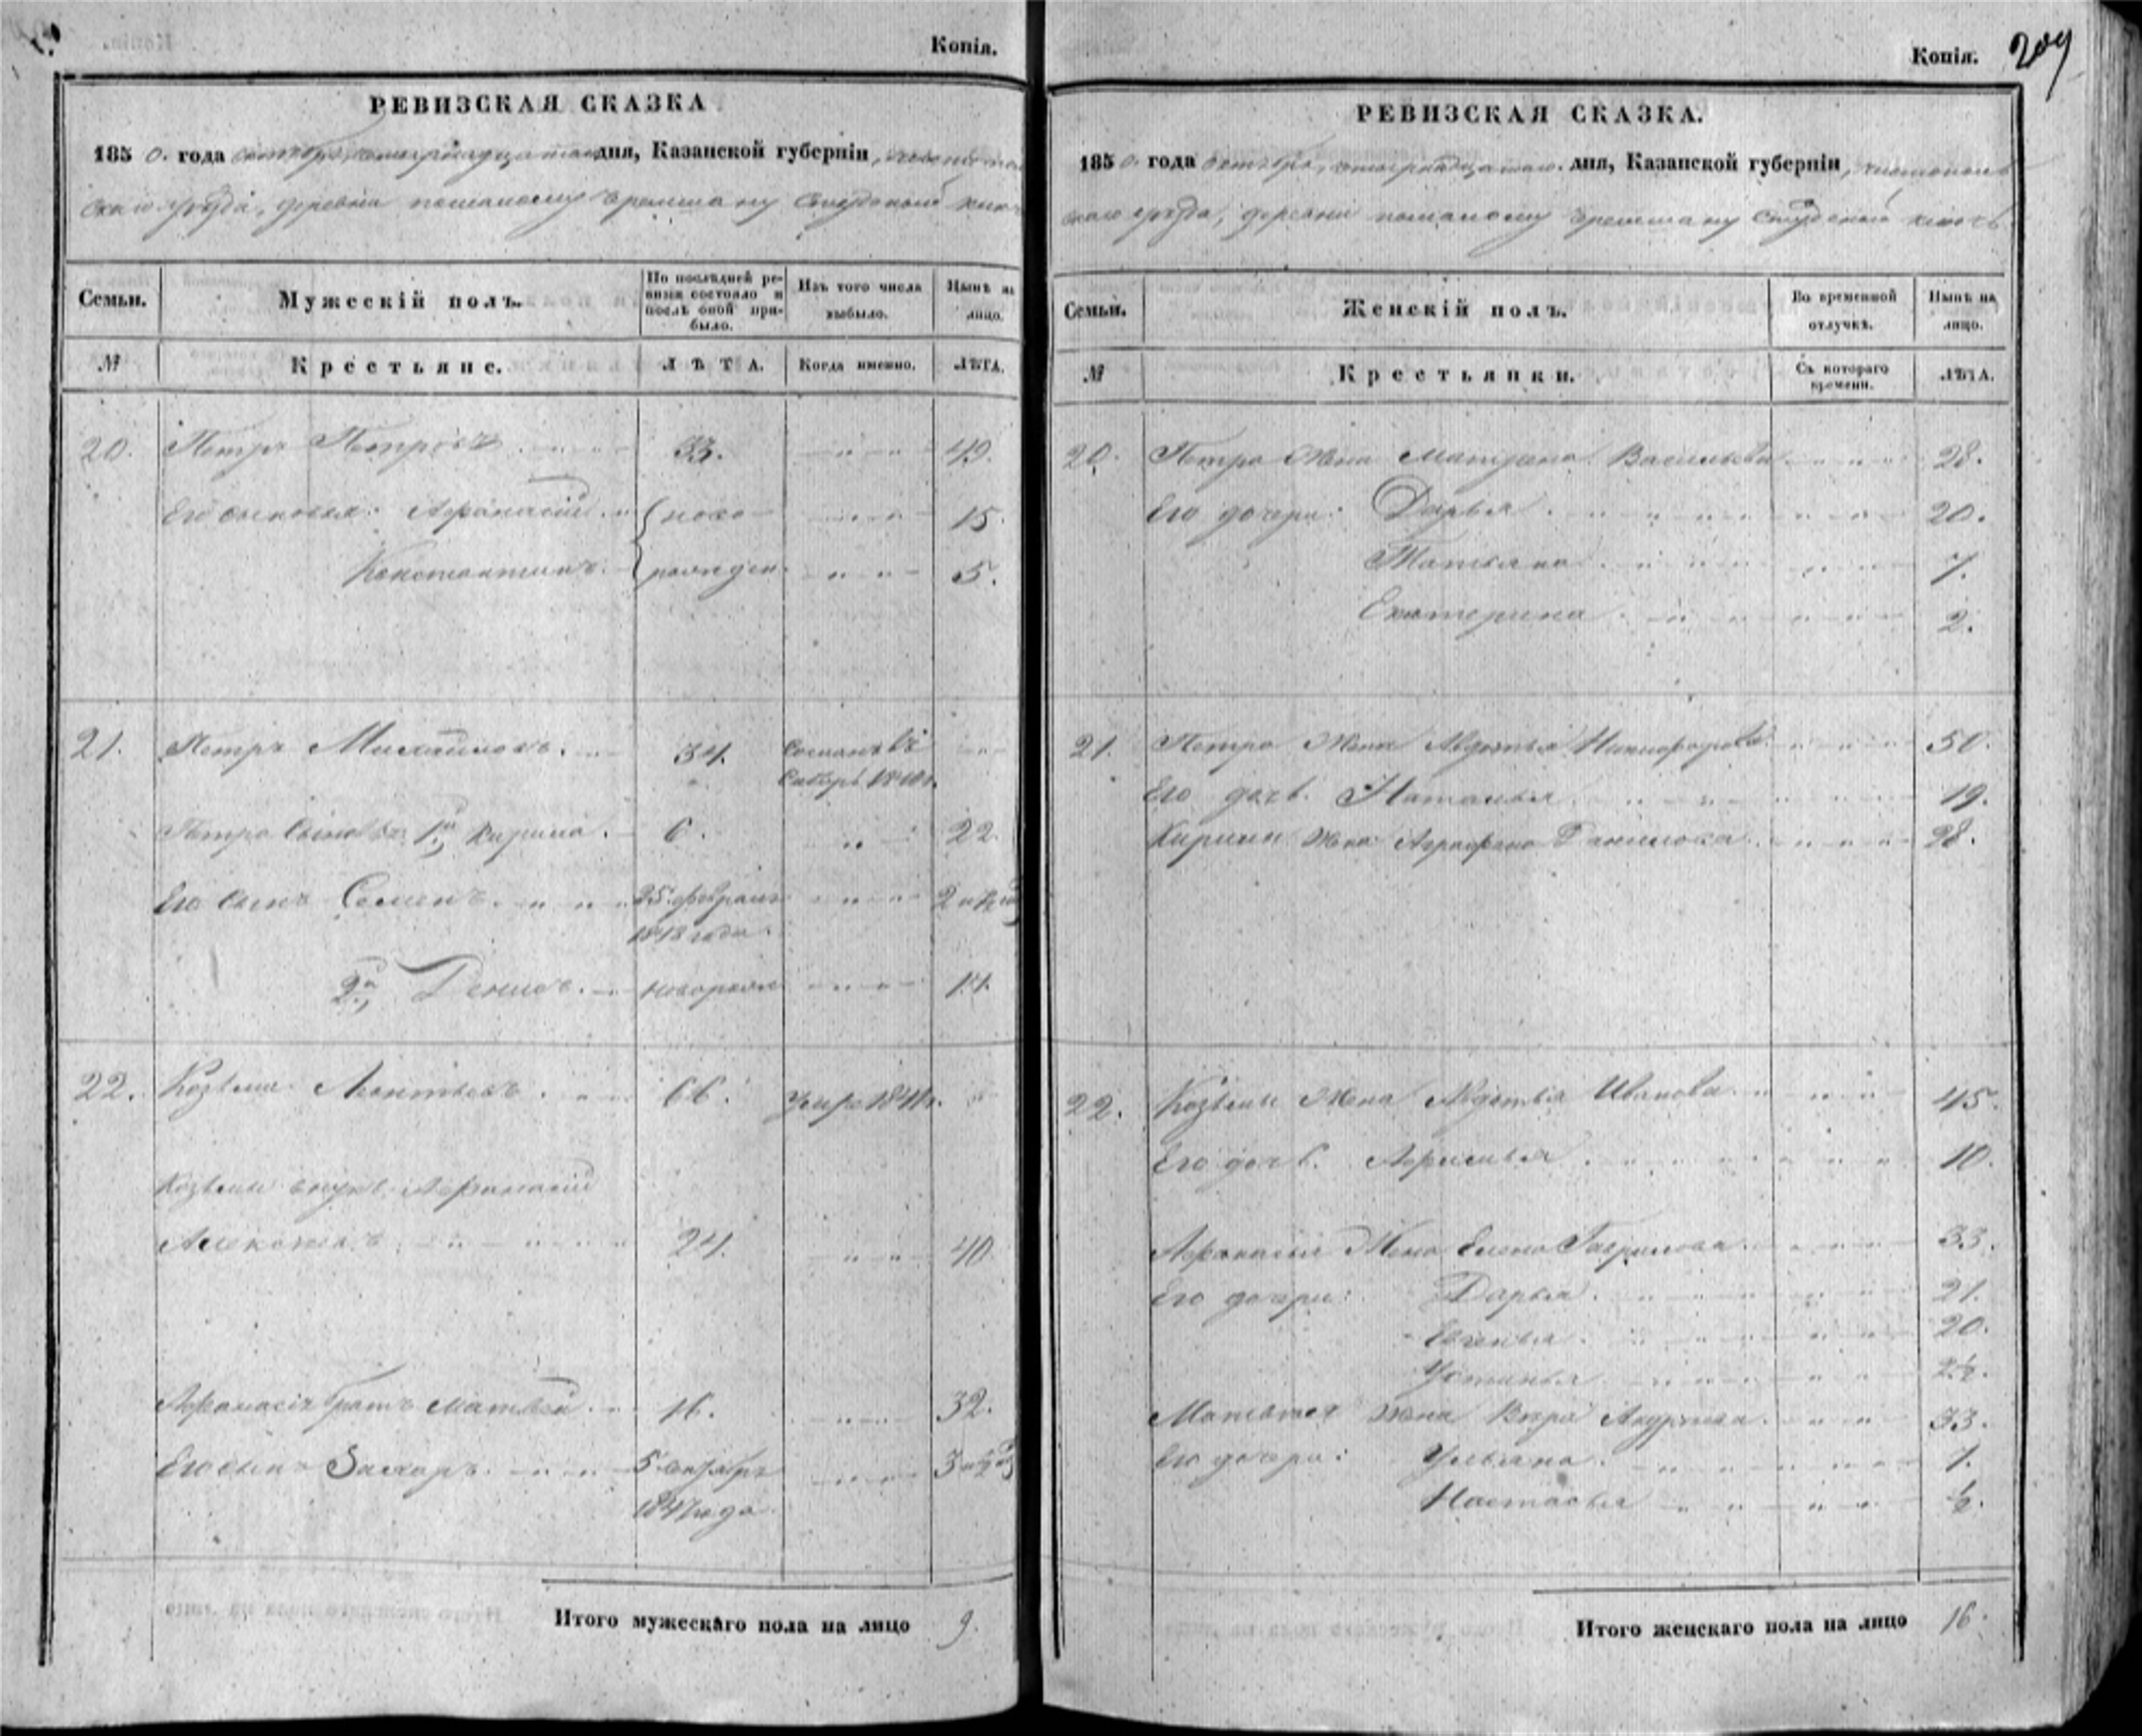 Копія.
РЕВИЗСКАЯ СКАЗКА
1850. года октября, четырнадцатаго дня, Казанской губерніи,
скаго уѣзда, деревни помалому Черемшану Студеный ключь
Семьи.
Мужескій полъ.
По послѣдней ре-
визіи состояло и
послѣ оной при-
было.
Изъ того числа
выбыло.
Нынѣ на
лицо.
№
Крестьяне.
ЛѢТА.
Когда именно.
ЛѢТА.
20. Петръ Петровъ 33. 49.
Его сыновья: Афанасій ново 15.
Константинъ рожден. 5.
21. Петръ Михайловъ. 34. Сосланъ въ
Сибирь 1840г.
Петра сыновья 1й, Кирила. 6. 22.
Его сынъ Семенъ. 25 февраля 2 и ½
1848 года.
2й, Денисъ. новорож 14.
22. Козьма Леонтьевъ. 66. Умре 1841г.
Козьмы внукъ Афанасій
Алексѣевъ. 24. 40
Афанасія братъ Матвей 16. 32.
Его сынъ Захаръ. 5 октября 3 и ½
1847 года
Итого мужескаго пола на лицо 9.
Копія. 209
РЕВИЗСКАЯ СКАЗКА.
1850. года октября, четырнадцатаго. дня, Казанской губерніи, чистополь
скаго уѣзда, деревни помалому Черемшану Студеный ключь
Семьи.
Женскій полъ.
Во временной
отлучкѣ.
Нынѣ на
лицо.
№
Крестьянки.
Съ котораго
времени.
ЛѢТА.
20. Петра жена Матрена Васильева 28.
Его дочери: Дарья 20.
Татьяна 7.
Екатерина 2.
21. Петра жена Авдотья Никифорова 50.
Его дочь. Наталья 19.
Кирилы жена Аграфена Данилова 28.
22. Козьмы жена Авдотья Иванова 45.
Его дочь. Афимья 10.
Афанасія жена Елена Гаврилова 33.
Его дочери: Дарья 21.
Евгенья 20.
Устинья 2½.
Матвея жена Вѣра Андреева 33.
Его дочери: Ульяна 1.
Настасья ½.
Итого женскаго пола на лицо 16.